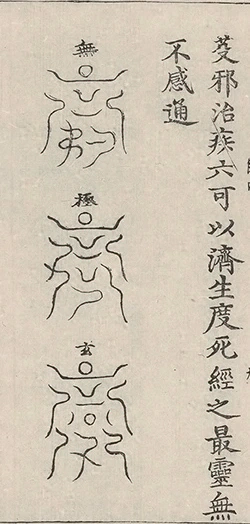 芟邪治疾亦可以濟生度死經之最靈無
不感通
無
極
玄